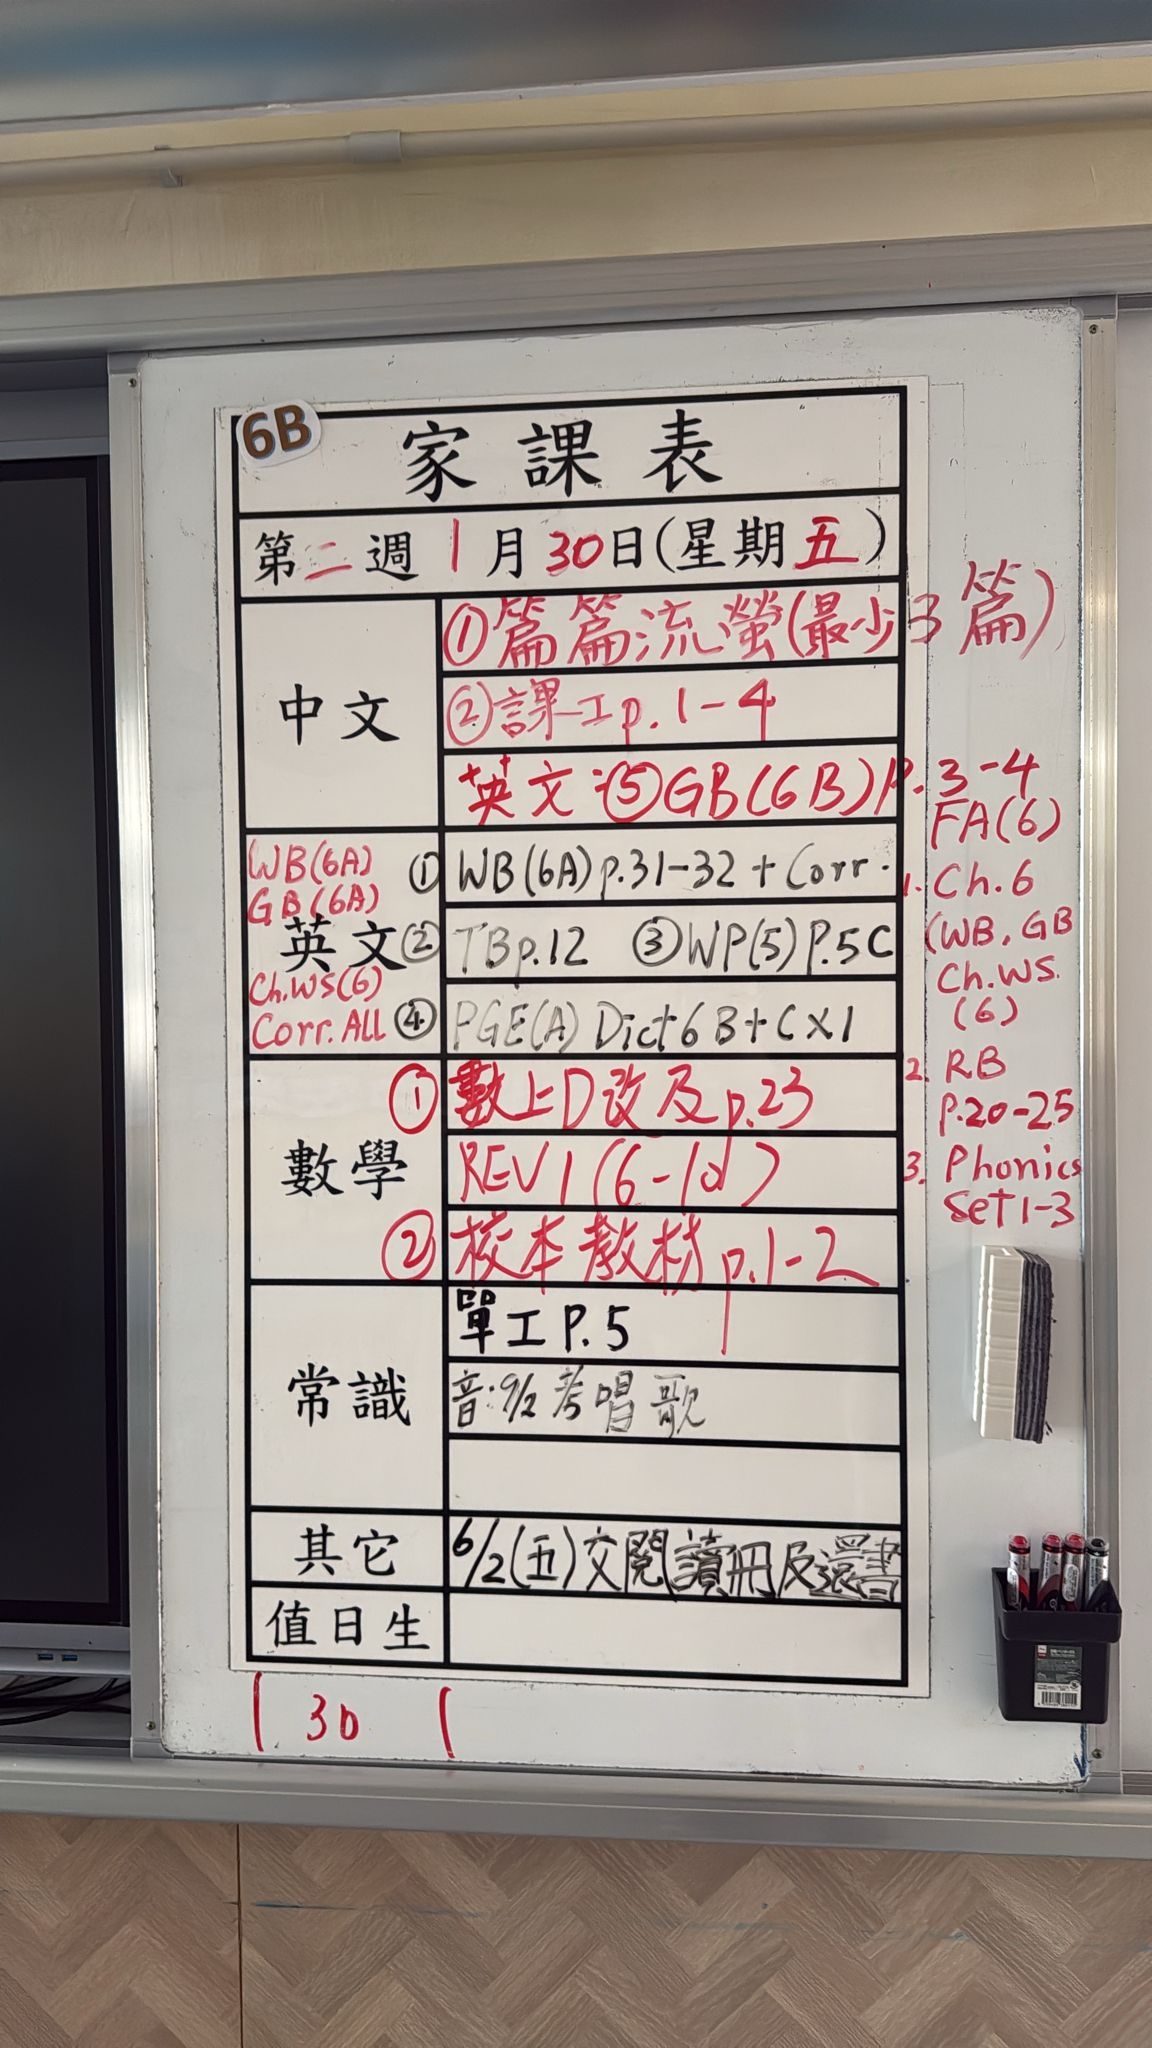 6B
家課表
第二週 1月30日(星期五)
中文
①篇篇流螢(最少3篇)
②課工p.1-4
英文:⑤GB(6B)P.3-4
英文
WB(6A)
GB(6A)
Ch.WS(6)
Corr.ALL
① WB(6A)p.31-32 + Corr.
② TBp.12 ③WP(5)P.5C
④ PGE(A) Dict 6B+C×1
FA(6)
1. Ch.6
(WB, GB
Ch.WS.
(6)
2. RB
p.20-25
3. Phonics
Set 1-3
數學
① 數上D改及p.23
REV1(6-10)
② 校本教材p.1-2
常識
單工P.5
音:9/2考唱歌
其它
6/2(五)交閱讀冊及還書
值日生
1 30 1